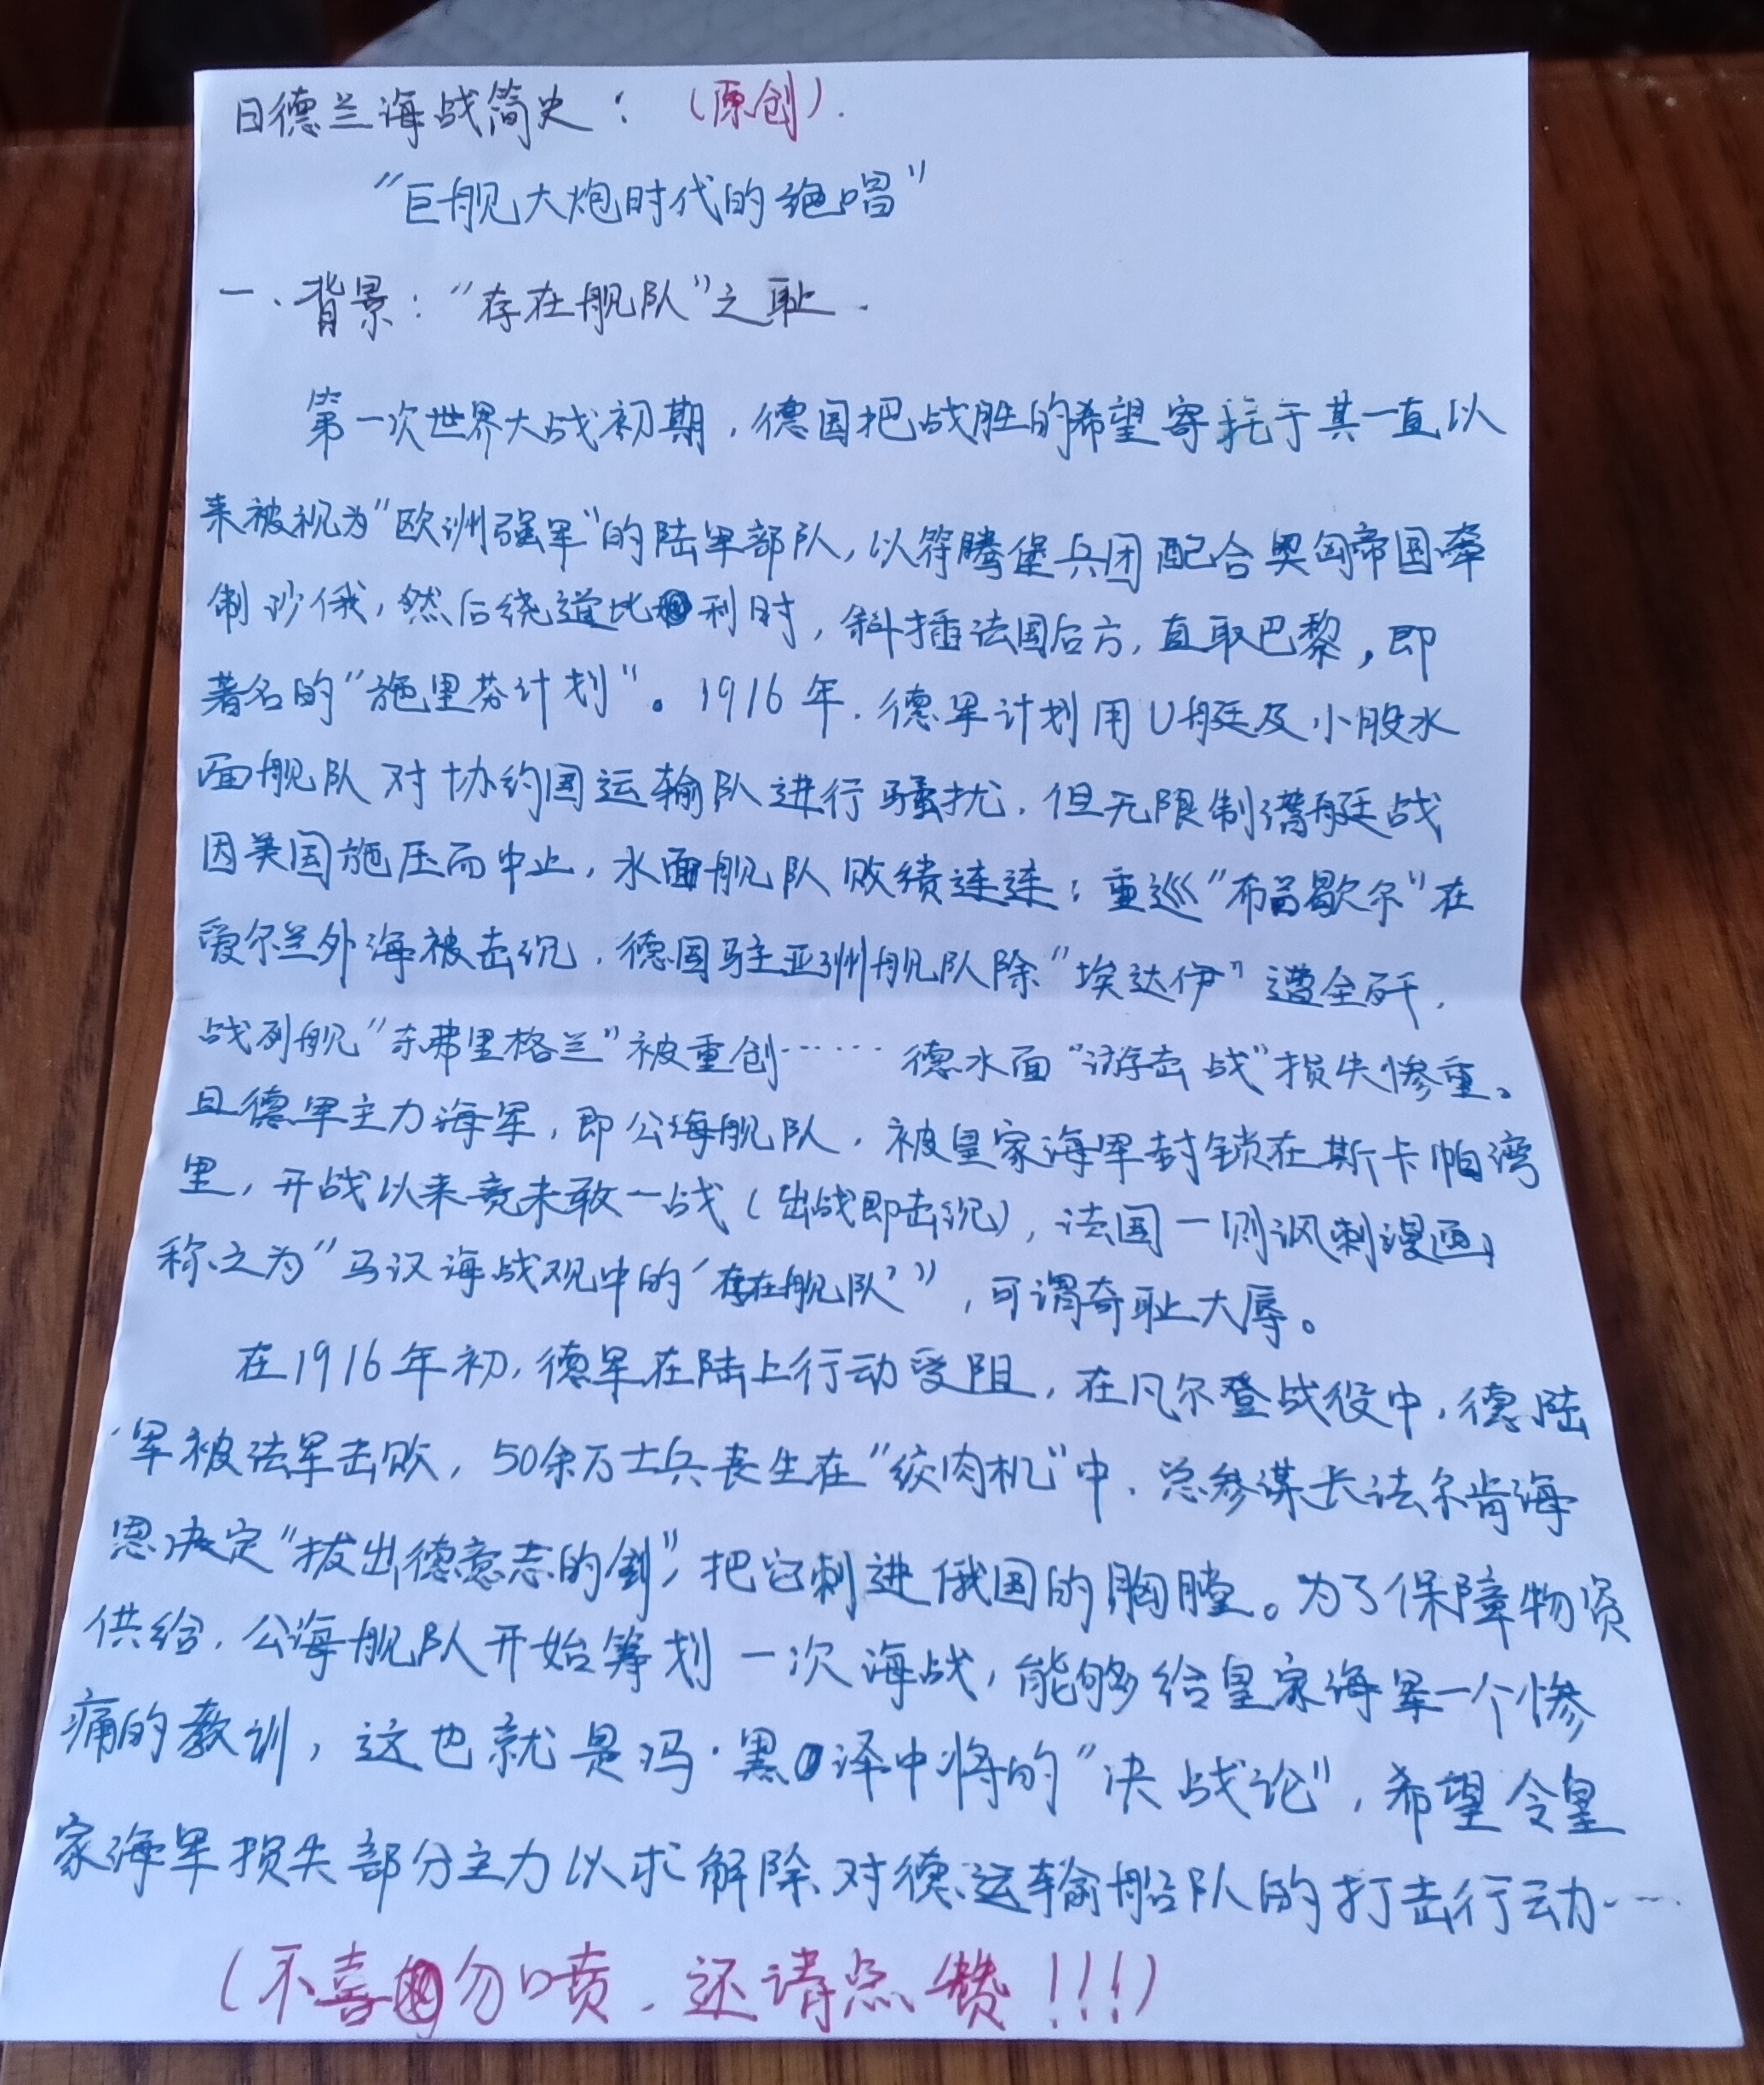 日德兰海战简史：（原创）.
“巨舰大炮时代的绝唱”
一．背景：“存在舰队”之耻．
第一次世界大战初期，德国把战胜的希望寄托于其一直以
来被视为“欧洲强军”的陆军部队，以符腾堡兵团配合奥匈帝国牵
制沙俄，然后绕道比利时，斜插法国后方，直取巴黎，即
著名的“施里芬计划”。1916年，德军计划用U艇及小股水
面舰队对协约国运输队进行骚扰，但无限制潜艇战
因美国施压而中止，水面舰队败绩连连：重巡“布吕歇尔”在
爱尔兰外海被击沉，德国驻亚洲舰队除“埃达伊”遭全歼，
战列舰“东弗里格兰”被重创……德水面“游击战”损失惨重。
且德军主力海军，即公海舰队，被皇家海军封锁在斯卡帕湾
里，开战以来竟未敢一战（出战即击沉），法国一则讽刺漫画
称之为“马汉海战观中的‘存在舰队’”，可谓奇耻大辱。
在1916年初，德军在陆上行动受阻，在凡尔登战役中，德陆
军被法军击败，50余万士兵丧生在“绞肉机”中，总参谋长法尔肯海
恩决定“拔出德意志的剑”，把它刺进俄国的胸膛。为了保障物资
供给，公海舰队开始筹划一次海战，能够给皇家海军一个惨
痛的教训，这也就是冯·黑泽中将的“决战论”，希望令皇
家海军损失部分主力以求解除对德运输船队的打击行动……
（不喜勿喷，还请点赞！！！）